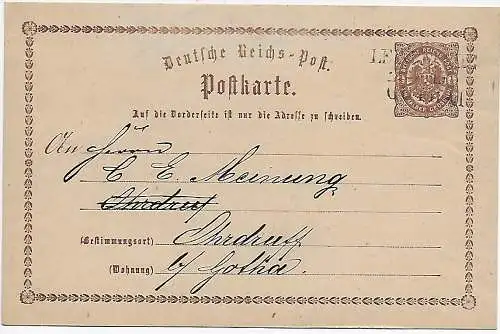 Deutsche Reichs-Post.
Postkarte.
Auf die Vorderseite ist nur die Adresse zu schreiben.
An Herrn
C. E. Meinung
Ohrdruf
(Bestimmungsort) Ohrdruff
(Wohnung) b/ Gotha.